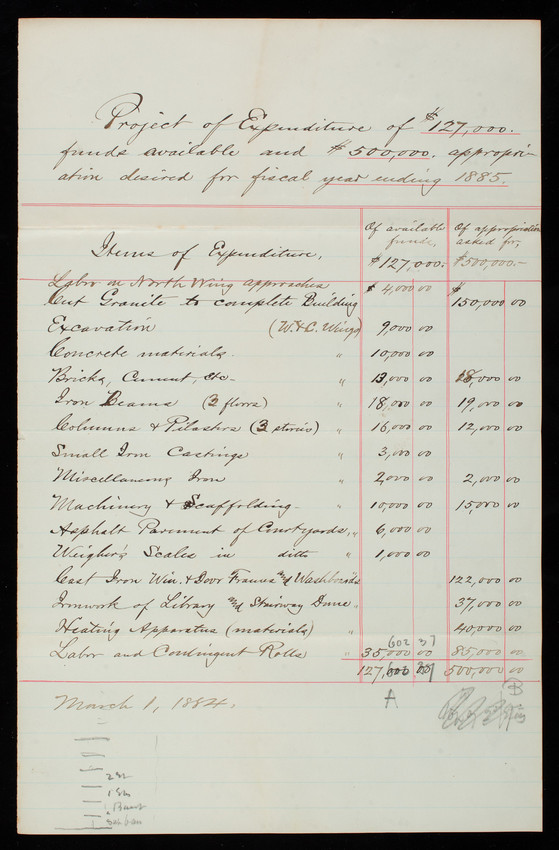 Project of Expenditure of $127,000.
funds available and $500,000. appropri-
ation desired for fiscal year ending 1885.
Items of Expenditure.
Of available funds, $127,000.-
Of appropriation asked for, $500,000.-
Labor on North Wing approaches $4,000 00 $
Cut Granite to complete Building 150,000 00
Excavation (W. & C. Wings) 9,000 00
Concrete materials. " 10,000 00
Bricks, Cement, etc- " 13,000 00 18,000 00
Iron Beams (3 floors) " 18,000 00 19,000 00
Columns & Pilasters (3 stories) " 16,000 00 12,000 00
Small Iron Castings " 3,000 00
Miscellaneous Iron " 2,000 00 2,000 00
Machinery & Scaffolding- " 10,000 00 15,000 00
Asphalt Pavement of Courtyards, " 6,000 00
Weigher's Scales in ditto " 1,000 00
Cast Iron Win. & Door Frames and Washboards 122,000 00
Ironwork of Library and Stairway Dome. 37,000 00
Heating Apparatus (materials) " 40,000 00
602 37
Labor and Contingent Rolls " 35,000 00 85,000 00
127,602 37 500,000 00
A B
March 1, 1884.